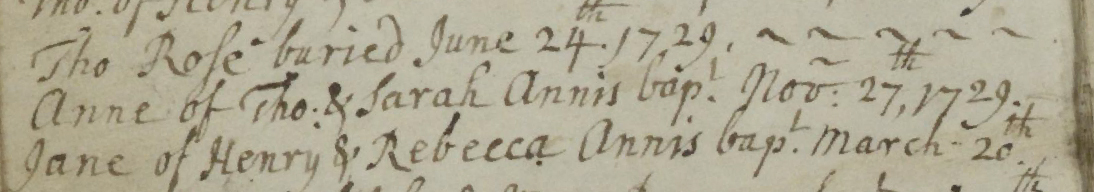 Tho. of Henry &
Tho Rose buried June 24th. 1729. ~ ~ ~ ~ ~
Anne of Tho: & Sarah Annis bapt. Nov: 27th, 1729.
Jane of Henry & Rebecca Annis bapt. March 20th.